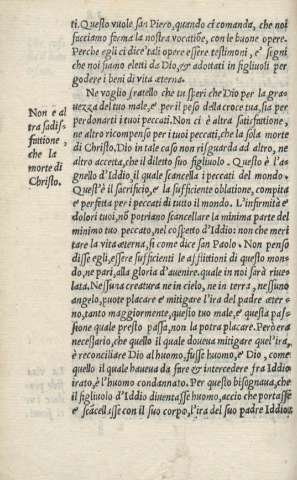 ti. Questo vuole san Piero, quando ci comanda, che noi
facciamo ferma la nostra vocatiõe, con le buone opere.
Perche egli ci dice tali opere essere testimoni, e' signi
che noi siamo eletti da Dio, & adottati in figliuoli per
godere i beni di vita æterna.
Ne voglio fratello che tu speri che Dio per la gra-
uezza del tuo male, e' per il peso della croce tua, sia per
perdonarti i tuoi peccati. Non ci è altra satisfattione,
ne altro ricompenso per i tuoi peccati, che la sola morte
di Christo. Dio in tale caso non risguarda ad altro, ne
altro accetta, che il diletto suo figliuolo. Questo è l'a-
gnello d'Iddio, il quale scancella i peccati del mondo.
Quest'è il sacrificio, e' la sufficiente oblatione, compita
e' perfetta per i peccati di tutto il mondo. L'infirmità e'
dolori tuoi, nõ potriano scancellare la minima parte del
minimo tuo peccato, nel cospetto d'Iddio: non che meri
tare la vita æterna, si come dice san Paolo. Non penso
disse egli, essere sufficienti le afflittioni di questo mon-
do, ne pari, alla gloria d'auenire. quale in noi sarà riue-
lata. Nessuna creatura ne in cielo, ne in terra, nessuno
angelo, puote placare e' mitigare l'ira del padre æter-
no, tanto maggiormente, questo tuo male, e' questa pas-
sione quale presto passa, non la potra placare. Però era
necessario, che quello il quale doueua mitigare quel'ira,
e' reconciliare Dio al huomo, fusse huomo, e' Dio, come
quello il quale haueua da fare & intercedere fra Iddio
irato, e' l'huomo condannato. Per questo bisognaua, che
il figliuolo d'Iddio diuentasse huomo, accio che portasse
e' scācellasse con il suo corpo, l'ira del suo padre Iddio:
Non e al
tra sadis-
fattione,
che la
morte di
Christo.